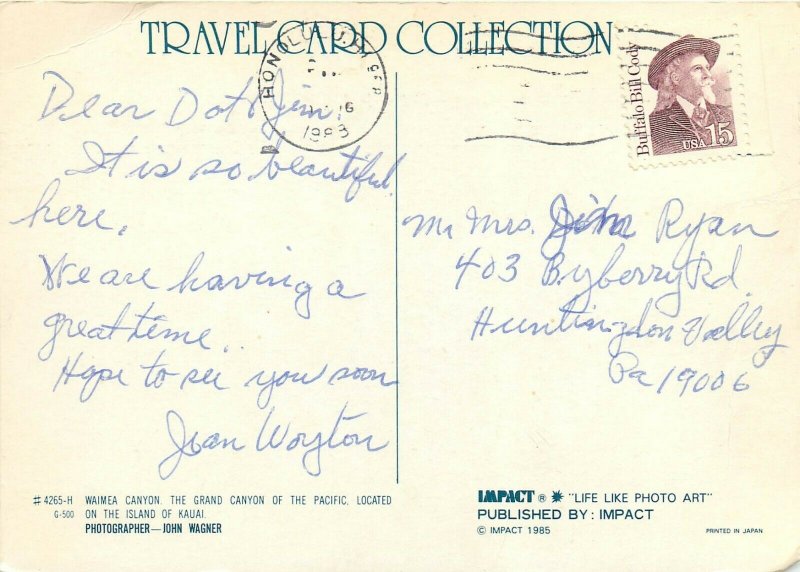 TRAVEL CARD COLLECTION
HONOLULU, HI 968
16
1988
Buffalo Bill Cody
USA 15
Dear Dot & Jim,
It is so beautiful
here.
We are having a
great time..
Hope to see you soon
Joan Woyton
Mr Mrs. Jim Ryan
403 Byberry Rd.
Huntingdon Valley
Pa 19006
#4265-H WAIMEA CANYON. THE GRAND CANYON OF THE PACIFIC, LOCATED
G-500 ON THE ISLAND OF KAUAI.
PHOTOGRAPHER—JOHN WAGNER
IMPACT ® "LIFE LIKE PHOTO ART"
PUBLISHED BY: IMPACT
© IMPACT 1985
PRINTED IN JAPAN